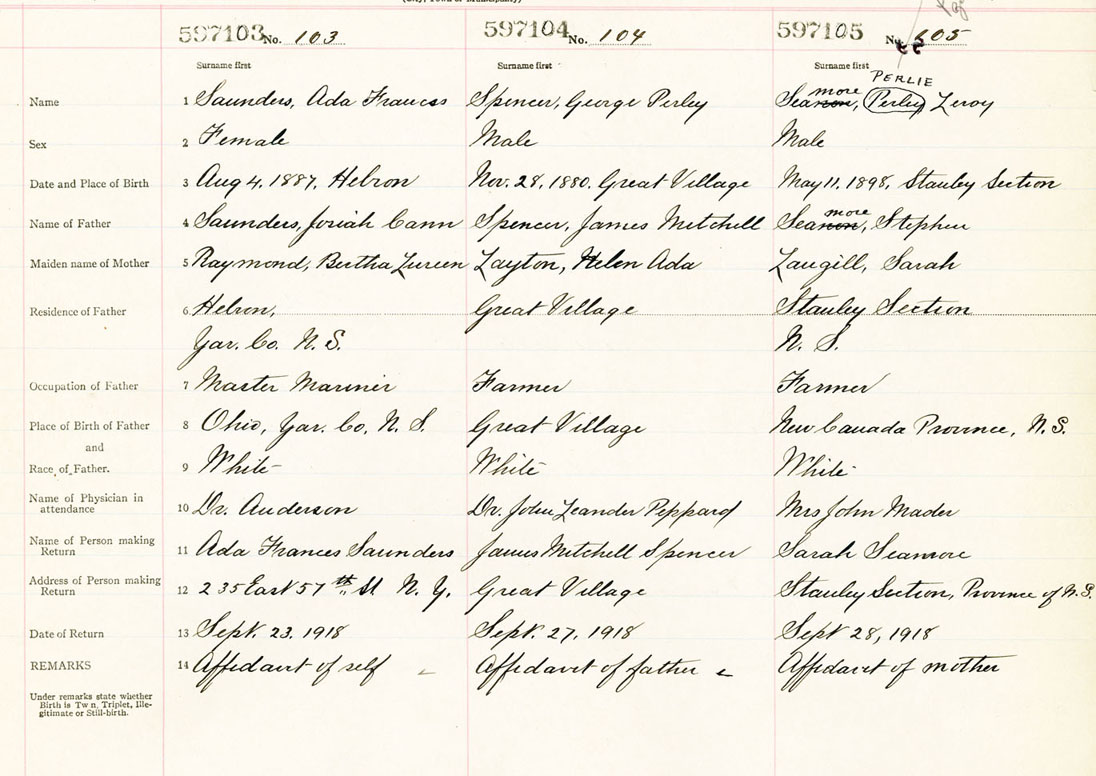 (City, Town or Municipality)
597103 No. 103 597104 No. 104 597105 No. 105
Surname first Surname first Surname first
PERLIE
more
Name 1 Saunders, Ada Frances Spencer, George Perley Seanon, Perley Leroy
Sex 2 Female Male Male
Date and Place of Birth 3 Aug 4, 1887, Hebron Nov. 28, 1880, Great Village May 11, 1898, Stanley Section
more
Name of Father 4 Saunders, Josiah Cann Spencer, James Mitchell Seanon, Stephen
Maiden name of Mother 5 Raymond, Bertha Zureen Layton, Helen Ada Langill, Sarah
Residence of Father 6 Hebron, Great Village Stanley Section
Yar. Co. N. S. N. S.
Occupation of Father 7 Master Mariner Farmer Farmer
Place of Birth of Father 8 Ohio, Yar. Co, N. S. Great Village New Canada Province, N.S.
and
Race of Father. 9 White White White
Name of Physician in
attendance 10 Dr. Anderson Dr. John Leander Peppard Mrs John Mader
Name of Person making
Return 11 Ada Frances Saunders James Mitchell Spencer Sarah Seamore
Address of Person making
Return 12 235 East 57th St N. Y. Great Village Stanley Section, Province of N.S.
Date of Return 13 Sept. 23, 1918 Sept. 27, 1918 Sept 28, 1918
REMARKS 14 Affidavit of self Affidavit of father Affidavit of mother
Under remarks state whether
Birth is Twin, Triplet, Ille-
gitimate or Still-birth.